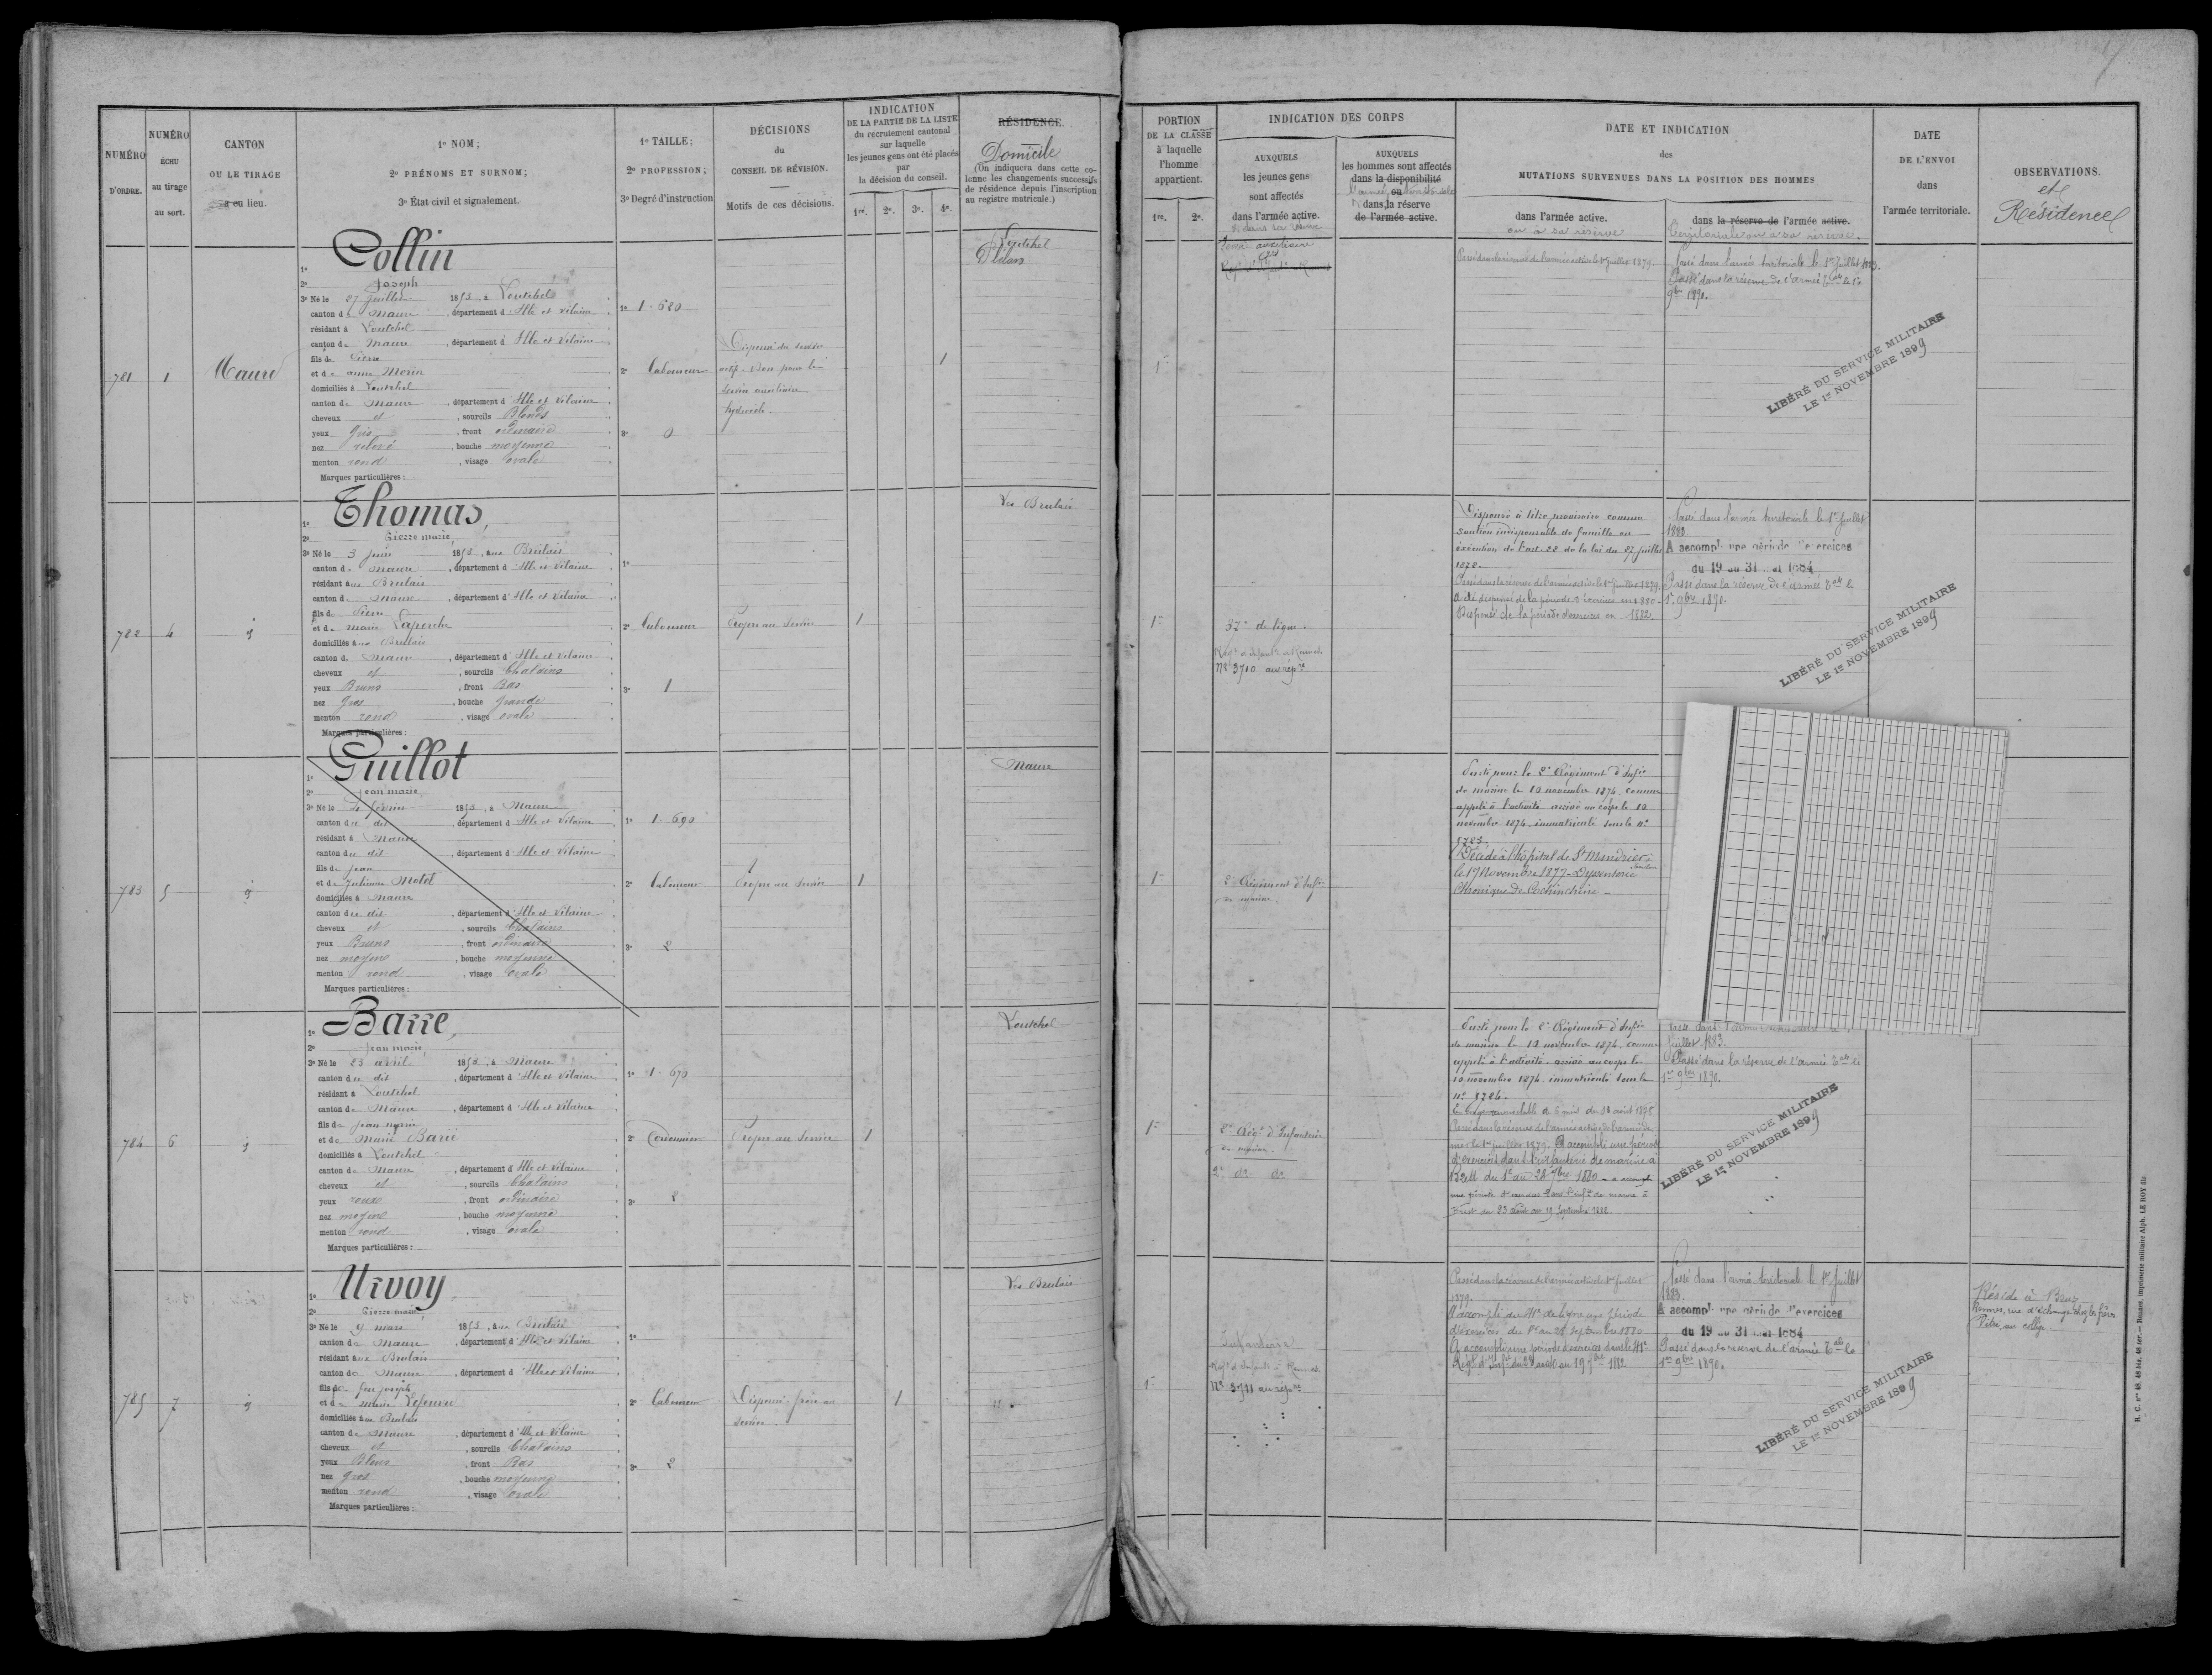 NUMÉRO
D'ORDRE.
NUMÉRO
ÉCHU
au tirage
au sort.
CANTON
OU LE TIRAGE
a eu lieu.
1o NOM;
2o PRÉNOMS ET SURNOM;
3o État civil et signalement.
1o TAILLE;
2o PROFESSION;
3o Degré d'instruction
DÉCISIONS
du
CONSEIL DE RÉVISION.
Motifs de ces décisions.
INDICATION
DE LA PARTIE DE LA LISTE
du recrutement cantonal
sur laquelle
les jeunes gens ont été placés
par
la décision du conseil.
1re. 2e. 3e. 4e.
RÉSIDENCE.
Domicile
(On indiquera dans cette co-
lonne les changements successifs
de résidence depuis l'inscription
au registre matricule.)
781
1
Maure
1o Collin
2o Joseph
3o Né le 27 Juillet 1853, à Loutehel
canton de Maure, département d'Ille et Vilaine
résidant à Loutehel
canton de Maure, département d'Ille et Vilaine
fils de Pierre
et de anne Morin
domiciliés à Loutehel
canton de Maure, département d'Ille et Vilaine
cheveux et, sourcils Blonds
yeux Gris, front ordinaire
nez relevé, bouche moyenne
menton rond, visage ovale
Marques particulières :
1o 1.620
2o Laboureur
3o 0
Dispensé du service
actif. Bon pour le
service auxiliaire
hydrocèle.
1
Loutehel
782
4
id
1o Thomas,
2o Pierre marie
3o Né le 3 Juin 1853, aux Brulais
canton de Maure, département d'Ille et Vilaine
résidant aux Brulais
canton de Maure, département d'Ille et Vilaine
fils de Pierre
et de marie Laperche
domiciliés aux Brulais
canton de Maure, département d'Ille et Vilaine
cheveux et, sourcils Chatains
yeux Bruns, front Bas
nez Gros, bouche Grande
menton rond, visage ovale
Marques particulières :
1o
2o Laboureur
3o 1
Propre au service
1
Les Brulais
783
5
id
1o Guillot
2o Jean marie
3o Né le 4 février 1853, à Maure
canton du dit, département d'Ille et Vilaine
résidant à Maure
canton du dit, département d'Ille et Vilaine
fils de Jean
et de Julienne Motel
domiciliés à Maure
canton du dit, département d'Ille et Vilaine
cheveux et, sourcils Chatains
yeux Bruns, front ordinaire
nez moyen, bouche moyenne
menton rond, visage ovale
Marques particulières :
1o 1.690
2o Laboureur
3o 2
Propre au service
1
Maure
784
6
id
1o Barre,
2o Jean marie
3o Né le 23 avril 1853, à Maure
canton du dit, département d'Ille et Vilaine
résidant à Loutehel
canton de Maure, département d'Ille et Vilaine
fils de Jean marie
et de Marie Barie
domiciliés à Loutehel
canton de Maure, département d'Ille et Vilaine
cheveux et, sourcils Chatains
yeux roux, front ordinaire
nez moyen, bouche moyenne
menton rond, visage ovale
Marques particulières :
1o 1.670
2o Cordonnier
3o 2
Propre au service
1
Loutehel
785
7
id
1o Urvoy
2o Pierre marie
3o Né le 9 mars 1853, aux Brulais
canton de Maure, département d'Ille et Vilaine
résidant aux Brulais
canton de Maure, département d'Ille et Vilaine
fils de feu Joseph
et de marie Lefeuvre
domiciliés aux Brulais
canton de Maure, département d'Ille et Vilaine
cheveux et, sourcils Chatains
yeux Bleus, front Bas
nez Gros, bouche moyenne
menton rond, visage ovale
Marques particulières :
1o
2o Laboureur
3o 2
Dispensé. frère au
service.
1
Les Brulais
PORTION
DE LA CLASSE
à laquelle
l'homme
appartient.
1re. 2e.
INDICATION DES CORPS
AUXQUELS
les jeunes gens
sont affectés
dans l'armée active.
& dans sa réserve
AUXQUELS
les hommes sont affectés
dans la disponibilité
ou
dans la réserve
de l'armée active.
DATE ET INDICATION
des
MUTATIONS SURVENUES DANS LA POSITION DES HOMMES
dans l'armée active.
ou à sa réserve
dans la réserve de l'armée active.
Territoriale ou à sa réserve.
DATE
DE L'ENVOI
dans
l'armée territoriale.
OBSERVATIONS.
et
Résidence
1re
Service auxiliaire
Passé dans la réserve de l'armée active le 1er Juillet 1879.
Passé dans l'armée territoriale le 1er Juillet 1883.
Passé dans la réserve de l'armée tale le 1er
9bre 1890.
LIBÉRÉ DU SERVICE MILITAIRE
LE 1er NOVEMBRE 1899
1re
37e de ligne.
No 3710 au rép.re
Dispensé à titre provisoire comme
soutien indispensable de famille en
exécution de l'art. 22 de la loi du 27 Juillet
1872.
Passé dans la réserve de l'armée active le 1er Juillet 1879.
A été dispensé de la période d'exercices en 1880.
Dispensé de la période d'exercices en 1882.
Passé dans l'armée territoriale le 1er Juillet
1883.
A accompli une période d'exercices
du 19 au 31 mai 1884
Passé dans la réserve de l'armée tale le
1er 9bre 1890.
LIBÉRÉ DU SERVICE MILITAIRE
LE 1er NOVEMBRE 1899
1re
2e Régiment d'Infie
de marine.
Parti pour le 2e Régiment d'Infie
de marine le 10 novembre 1874, comme
appelé à l'activité arrivé au corps le 10
novembre 1874, immatriculé sous le no
5723.
Décédé à l'hôpital de St Mandrier
le 17 Novembre 1877 - Dyssenterie
Chronique de Cochinchine -
1re
2e Régt d'Infanterie
de marine.
2e do do
Parti pour le 2e Régiment d'Infie
de marine le 10 novembre 1874, comme
appelé à l'activité. arrivé au corps le
10 novembre 1874 immatriculé sous le
no 5724.
Passé dans la réserve de l'armée active de l'armée de
mer le 1er juillet 1879. A accompli une période
d'exercices dans l'infanterie de marine à
Brest du 1er au 28 7bre 1880 - a accompli
une période d'exercices dans l'infie de marine à
Brest du 23 août au 19 Septembre 1882.
Passé dans l'armée territoriale le 1er
Juillet 1883.
Passé dans la réserve de l'armée tale le
1er 9bre 1890.
LIBÉRÉ DU SERVICE MILITAIRE
LE 1er NOVEMBRE 1899
1re
Infanterie
Régt d'Infantie à Rennes
No 3711 au rép.re
Passé dans la réserve de l'armée active le 1er Juillet
1879.
A accompli au 41e de ligne une période
d'exercices du 1er au 28 Septembre 1880
A accompli une période d'exercices dans le 41e
Régt d'Infie du 23 août au 19 7bre 1882
Passé dans l'armée territoriale le 1er Juillet
1883.
A accompli une période d'exercices
du 19 au 31 mai 1884
Passé dans la réserve de l'armée tale le
1er 9bre 1890.
LIBÉRÉ DU SERVICE MILITAIRE
LE 1er NOVEMBRE 1899
Réside à Bruz
Rennes, rue d'échange chez les frères
R. C. nos 48, 48 bis, 48 ter. — Rennes, imprimerie militaire Alph. LE ROY fils